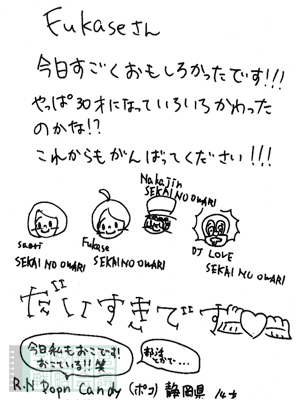 Fukaseさん
今日すごくおもしろかったです!!!
やっぱ30才になっていろいろかわった
のかな!?
これからもがんばってください!!!
Nakajin
SEKAI NO OWARI
saori
SEKAI NO OWARI
Fukase
SEKAI NO OWARI
DJ LOVE
SEKAI NO OWARI
だいすきです
今日私もおこです!
おこている!!笑
部活
とかで…
R.N Popn Candy (ポコ) 静岡県 14才